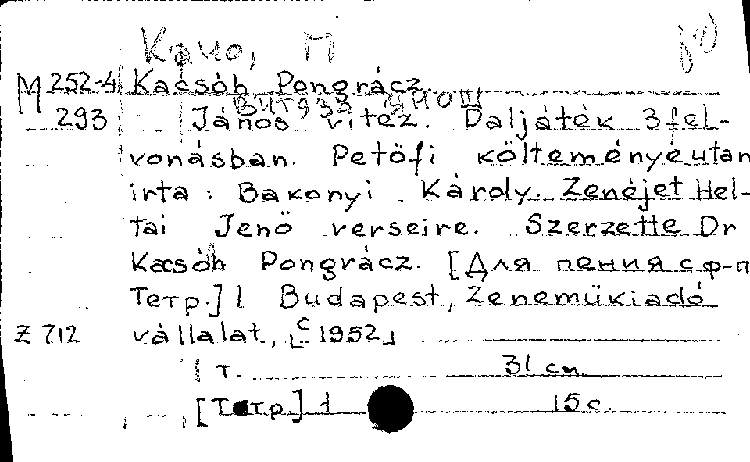 M 252-4 Kacsóh Pongrácz
293 János vitéz. Daljáték 3 fel-
vonásban. Petöfi költeménye után
irta: Bakonyi Károly. Zenéjét Hel-
tai Jenö verseire. Szerzette Dr
Kacsóh Pongrácz. [Для пения с ф-п
Тетр.] 1 Budapest, Zenemükiadó
Z 712 vállalat, [c 1952]
1 т. 31 см.
[Тетр.] 1 15 с.